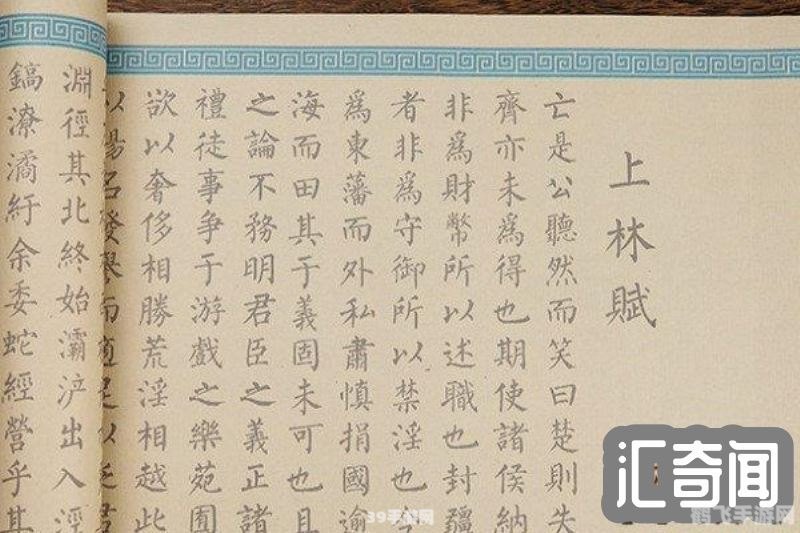 上林賦
亡是公聽然而笑曰楚則失
齊亦未爲得也期使諸侯納
非爲財幣所以述職也封疆
者非爲守御所以禁淫也
爲東藩而外私肅慎捐國逾
海而田其于義固未可也且
之論不務明君臣之義正諸
禮徒事争于游戲之樂苑囿
欲以奢侈相勝荒淫相越此
以揚名發譽而適足以
淵徑其北終始灞浐出入涇
鎬潦潏紆余委蛇經營乎其
汇奇闻
39手游网
鹤飞手游网